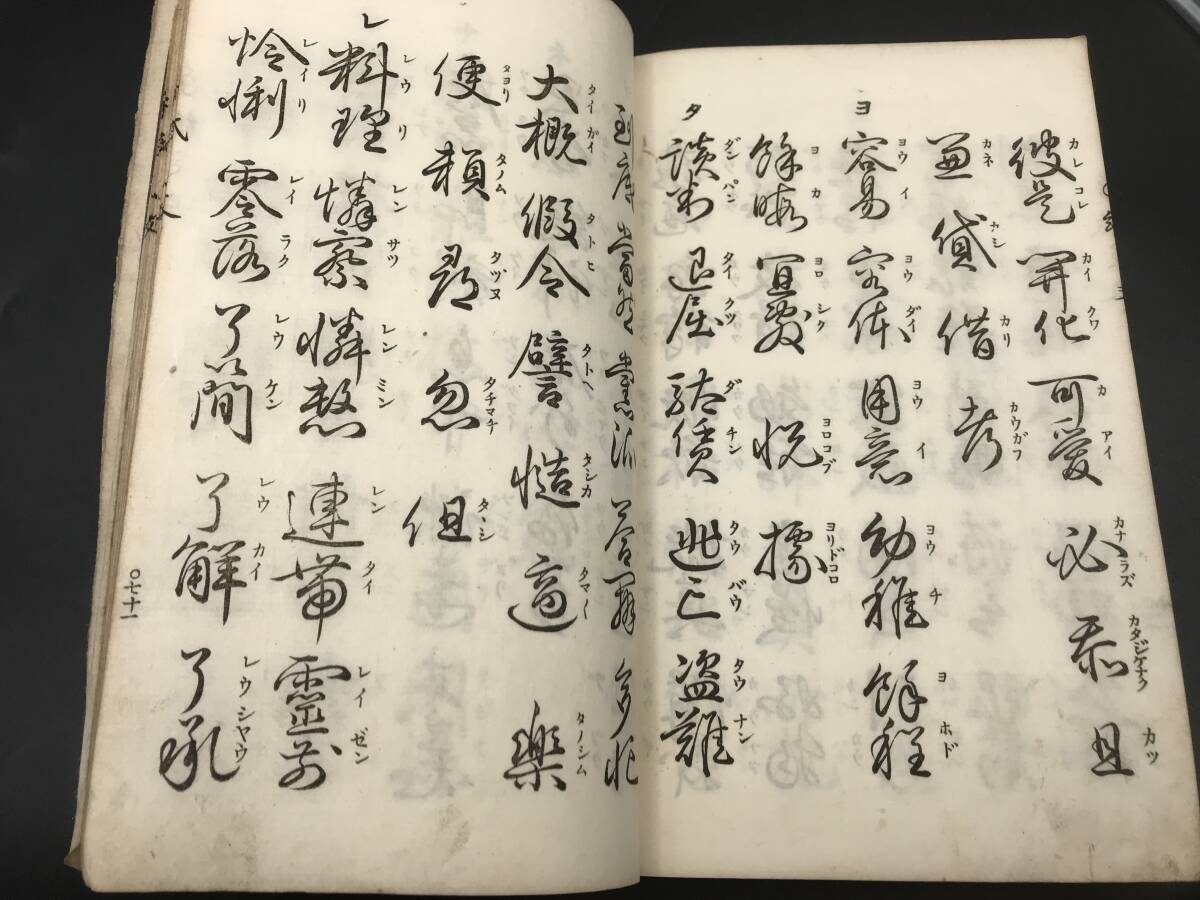 彼是 開化 可愛 必 忝 且
カレコレ カイクワ カアイ カナラズ カタジケナク カツ
兼 貸 借 考
カネ カシ カリ カウガフ
ヨ 容易 容体 用意 幼稚 餘程
ヨウイ ヨウダイ ヨウイ ヨウチ ヨホド
餘暇 宜敷 悦 據
ヨカ ヨロシク ヨロコブ ヨリドコロ
タ 談判 退屈 駄賃 逃亡 盗難
ダンパン タイクツ ダチン タウバウ タウナン
到底 當然 當流 多忙
大概 假令 譬 慥 適 樂
タイガイ タトヒ タトヘ タシカ タマ〱 タノシム
便 頼 尋 忽 但
タヨリ タノム タヅヌ タチマチ タヽシ
レ 料理 憐察 憐愍 連帯 靈前
レウリ レンサツ レンミン レンタイ レイゼン
怜悧 零落 了簡 了解 了承
レイリ レイラク レウケン レウカイ レウシヤウ
〇七十一